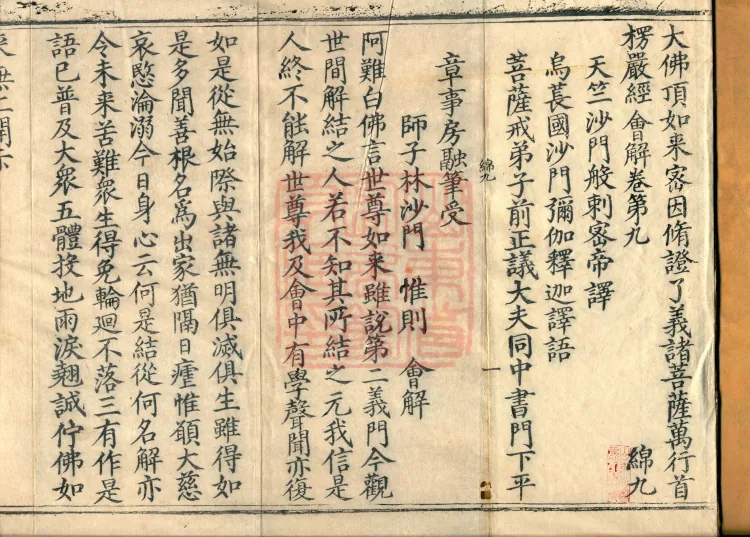 大佛頂如来宻因脩證了義諸菩薩萬行首
楞嚴經會解卷第九　綿九
天竺沙門般剌宻帝譯
烏萇國沙門彌伽釋迦譯語
菩薩戒弟子前正議大夫同中書門下平
綿九　一
章事房融筆受
師子林沙門　惟則　會解
阿難白佛言世尊如来雖說第二義門今觀
世間解結之人若不知其所結之元我信是
人終不能解世尊我及會中有學聲聞亦復
如是從無始際與諸無明俱滅俱生雖得如
是多聞善根名為出家猶隔日瘧惟願大慈
哀愍淪溺今日身心云何是結從何名解亦
令未来苦難衆生得免輪迴不落三有作是
語已普及大衆五體投地雨淚翹誠佇佛如